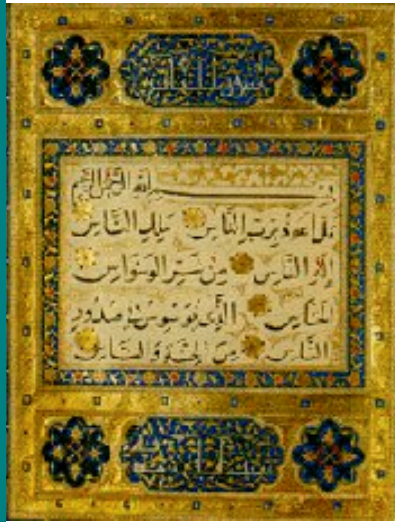 بسم الله الرحمن الرحيم
قل اعوذ برب الناس ملك الناس
اله الناس من شر الوسواس
الخناس الذي يوسوس في صدور
الناس من الجنة والناس